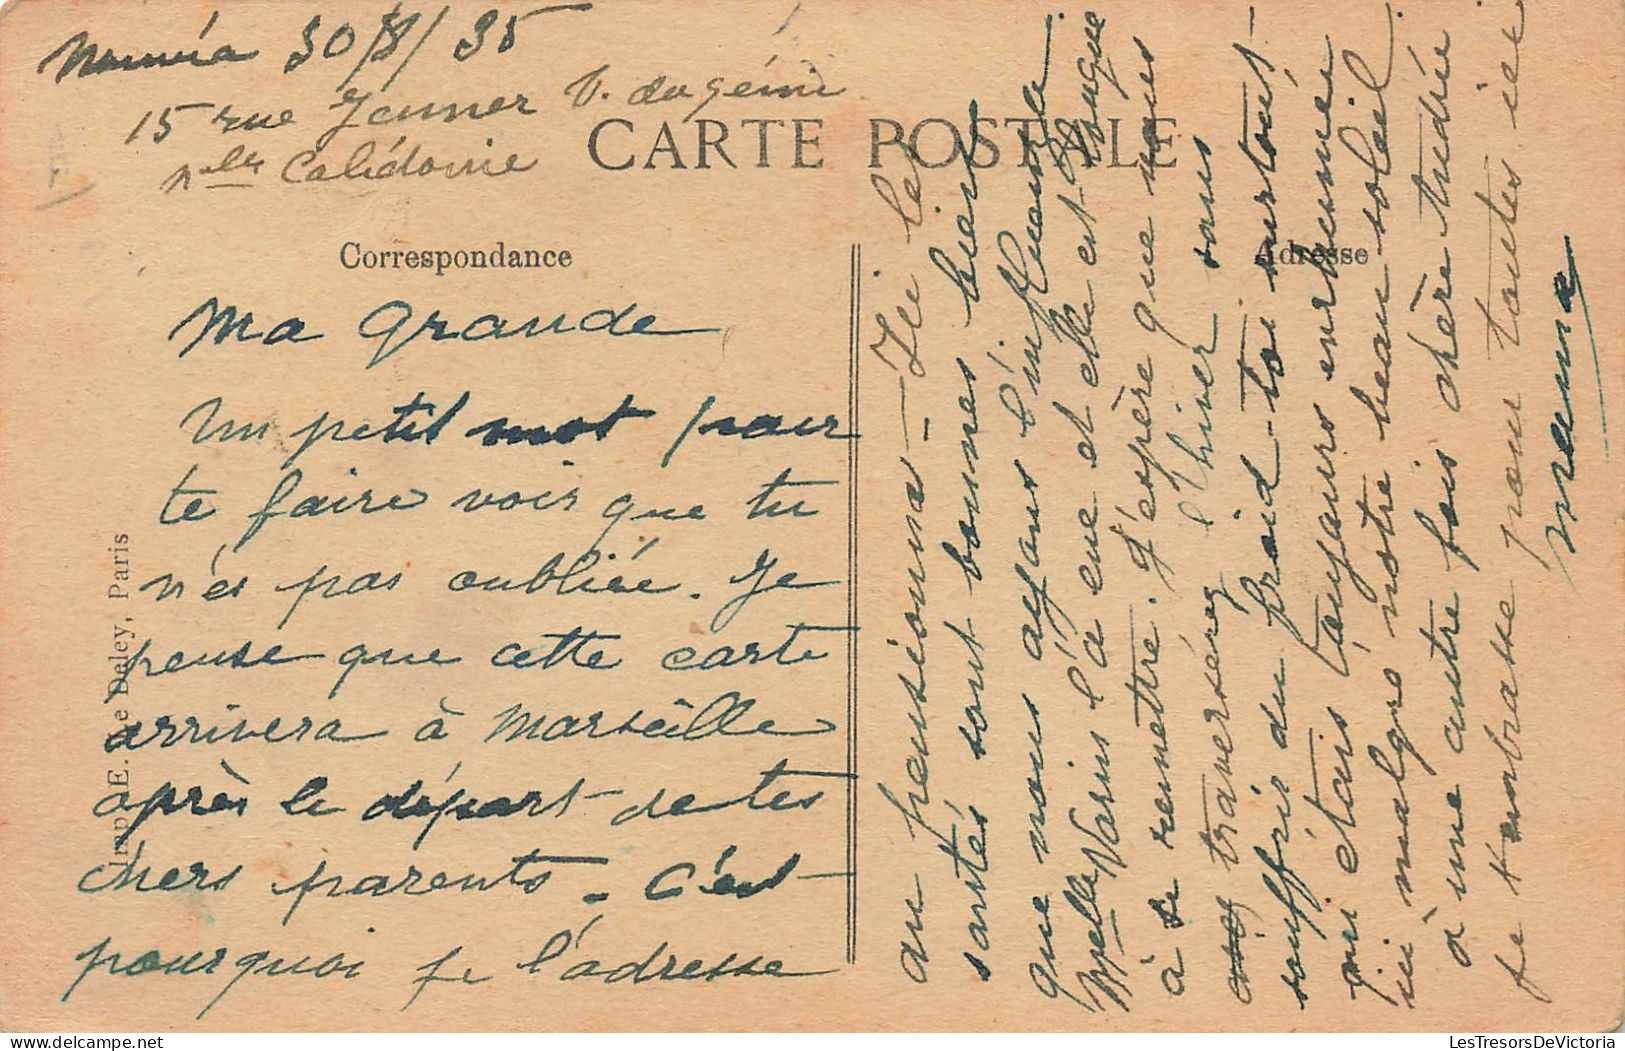 Nouméa 30/8/35
15 rue Jenner V. du génie
nlle Calédonie
CARTE POSTALE
Correspondance
Adresse
Imp. E. Le Deley, Paris
Ma Grande
Un petit mot pour
te faire voir que tu
n'es pas oubliée. Je
pense que cette carte
arrivera à Marseille
après le départ de tes
chers parents. C'est
pourquoi je l'adresse
au pensionna – Ici les
santés sont bonnes bien
que nous ayons l'influenza
Melle Varin l'a eue et elle est longue
à se remettre. J'espère que vous
traverserez l'hiver sans
souffrir du froid – toi surtout
qui étais toujours enrhumée
ici malgré notre beau soleil
à une autre fois chère
je t'embrasse pour toutes ici